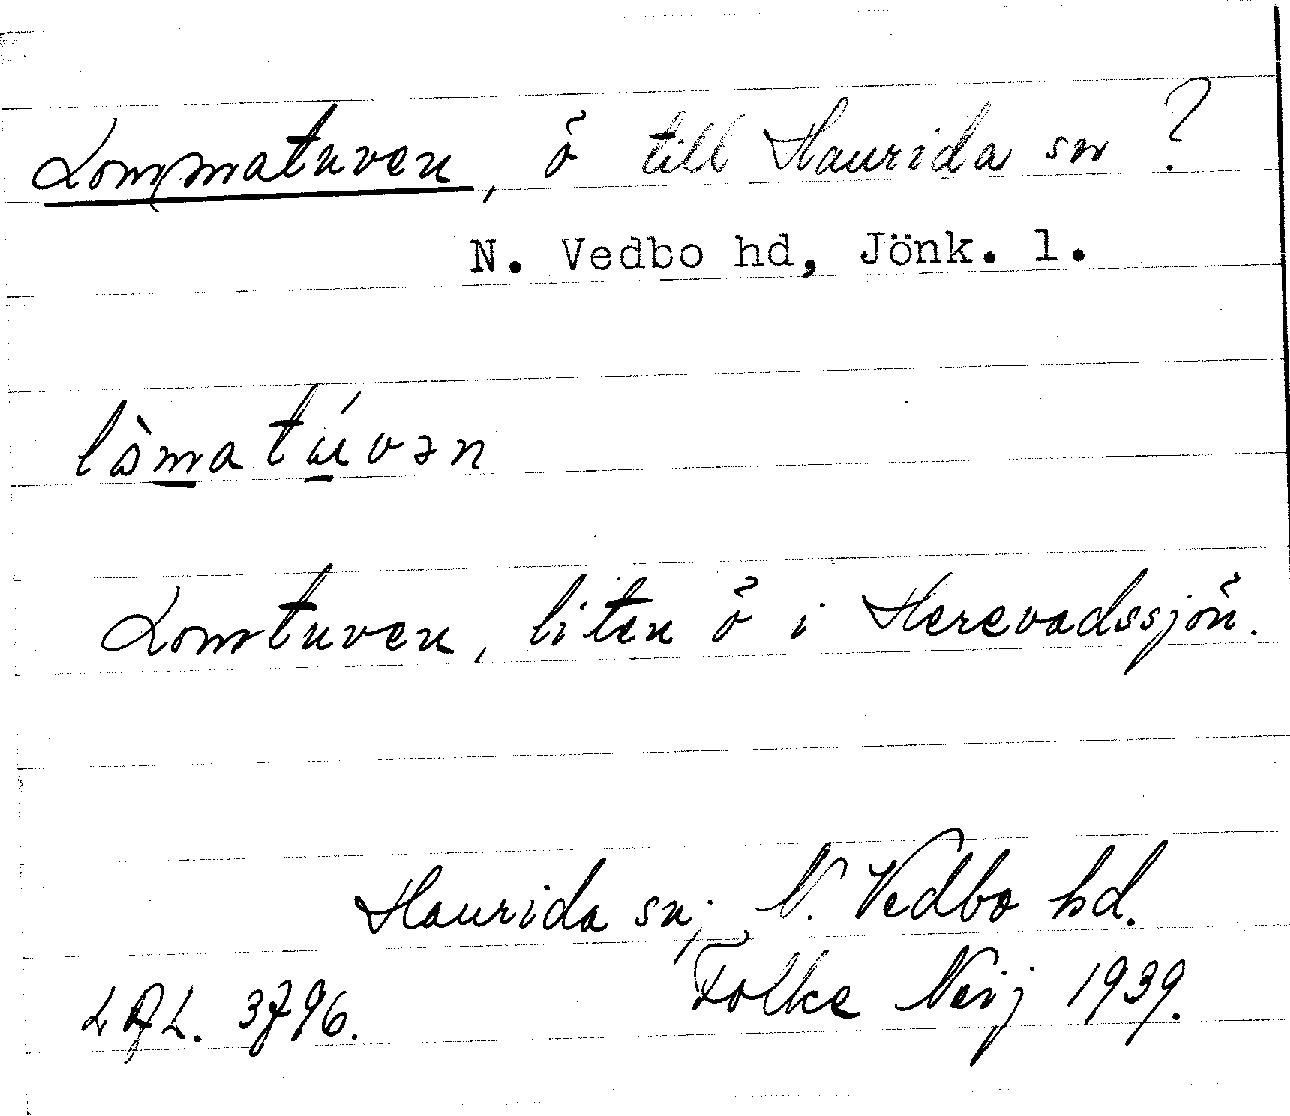 Lommatuven, ö till Haurida sn ?
N. Vedbo hd, Jönk. l.
lòmatúvən
Lomtuven, liten ö i Herevadssjön.
Haurida sn; N. Vedbo hd.
Folke Neij 1939.
LAL. 3796.